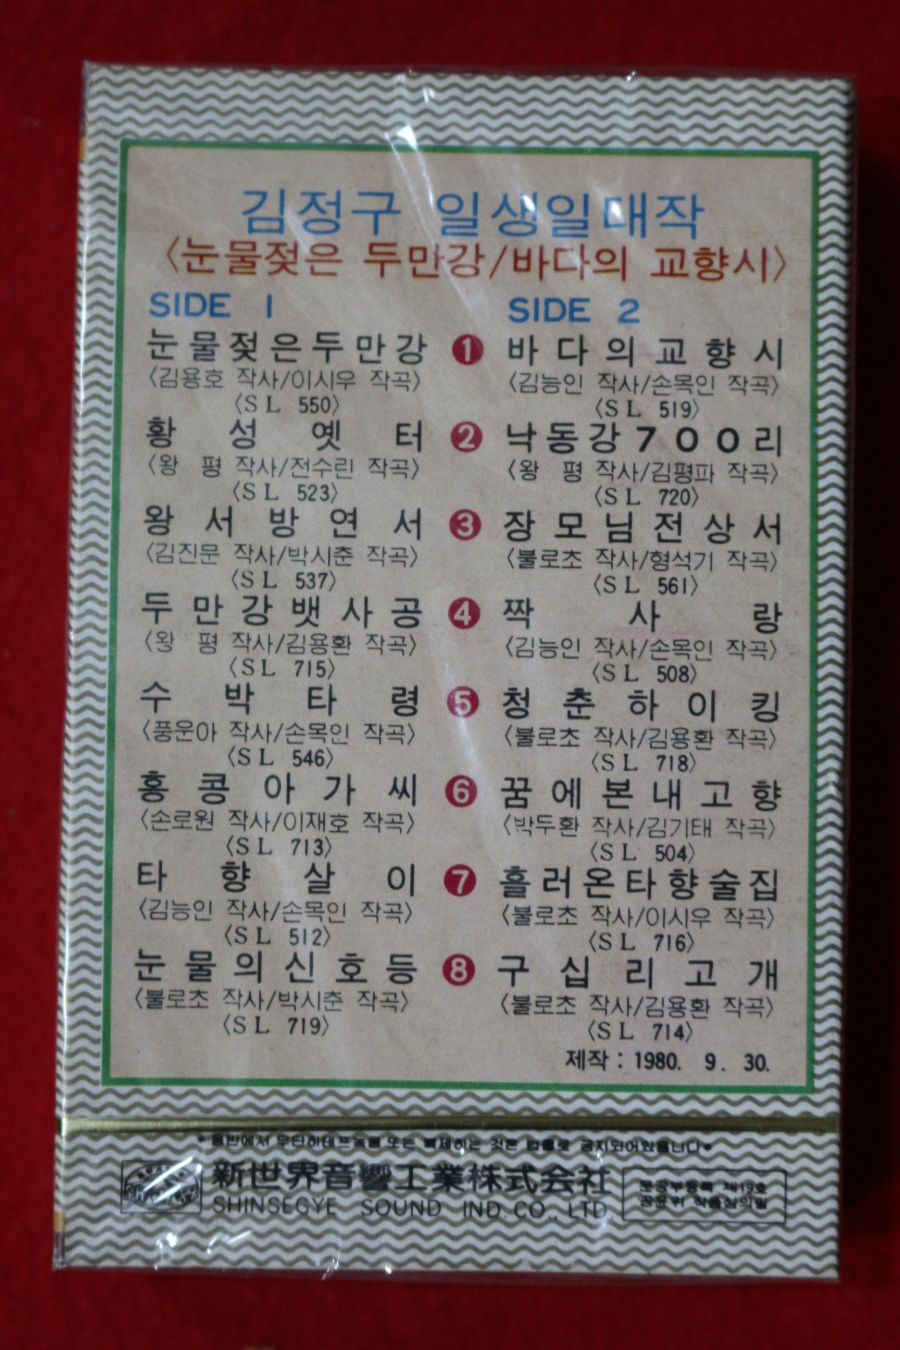 김정구 일생일대작
〈눈물젖은 두만강/바다의 교향시〉
SIDE 1
눈물젖은두만강
〈김용호 작사/이시우 작곡〉
〈SL 550〉
황성옛터
〈왕 평 작사/전수린 작곡〉
〈SL 523〉
왕서방연서
〈김진문 작사/박시춘 작곡〉
〈SL 537〉
두만강뱃사공
〈왕 평 작사/김용환 작곡〉
〈SL 715〉
수박타령
〈풍운아 작사/손목인 작곡〉
〈SL 546〉
홍콩아가씨
〈손로원 작사/이재호 작곡〉
〈SL 713〉
타향살이
〈김능인 작사/손목인 작곡〉
〈SL 512〉
눈물의신호등
〈불로초 작사/박시춘 작곡〉
〈SL 719〉
1
2
3
4
5
6
7
8
SIDE 2
바다의교향시
〈김능인 작사/손목인 작곡〉
〈SL 519〉
낙동강700리
〈왕 평 작사/김평파 작곡〉
〈SL 720〉
장모님전상서
〈불로초 작사/형석기 작곡〉
〈SL 561〉
짝사랑
〈김능인 작사/손목인 작곡〉
〈SL 508〉
청춘하이킹
〈불로초 작사/김용환 작곡〉
〈SL 718〉
꿈에본내고향
〈박두환 작사/김기태 작곡〉
〈SL 504〉
흘러온타향술집
〈불로초 작사/이시우 작곡〉
〈SL 716〉
구십리고개
〈불로초 작사/김용환 작곡〉
〈SL 714〉
제작: 1980. 9. 30.
*음반에서 무단히테프녹음 또는 복제하는 것은 법률로 금지되어있읍니다*
新世界音響工業株式会社
SHINSEGYE SOUND IND. CO., LTD
문공부등록 제19호
공윤위 작품심의필